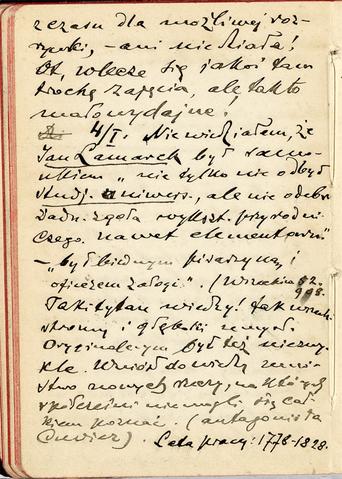 z czasu dla możliwej roz-
rywki, – ani nie działa!
Ot, wlecze się jakoś tam
trochę zajęcia, ale tak to
mało wydajne!
4/I. Nie wiedziałem, że
Jan Lamarck był samo-
ukiem „nie tylko nie odbył
studj. uniwers., ale nie odebr.
żadn. zgoła wykszt. przyrodni-
czego nawet elementarn.”
– „był biednym pisarzyną, i
oficerem załogi”. (Wszechśw. 52.
908.
Taki tytan wiedzy! Jak wszech-
stronny i głęboki umysł.
Oryginalnym był też niezwy-
kle. Wniósł do wiedzy mnó-
stwo nowych rzeczy, na których
współcześni nie mogli się cał-
kiem poznać. (antagonista
Cuvier). Lata pracy: 1778-1828.